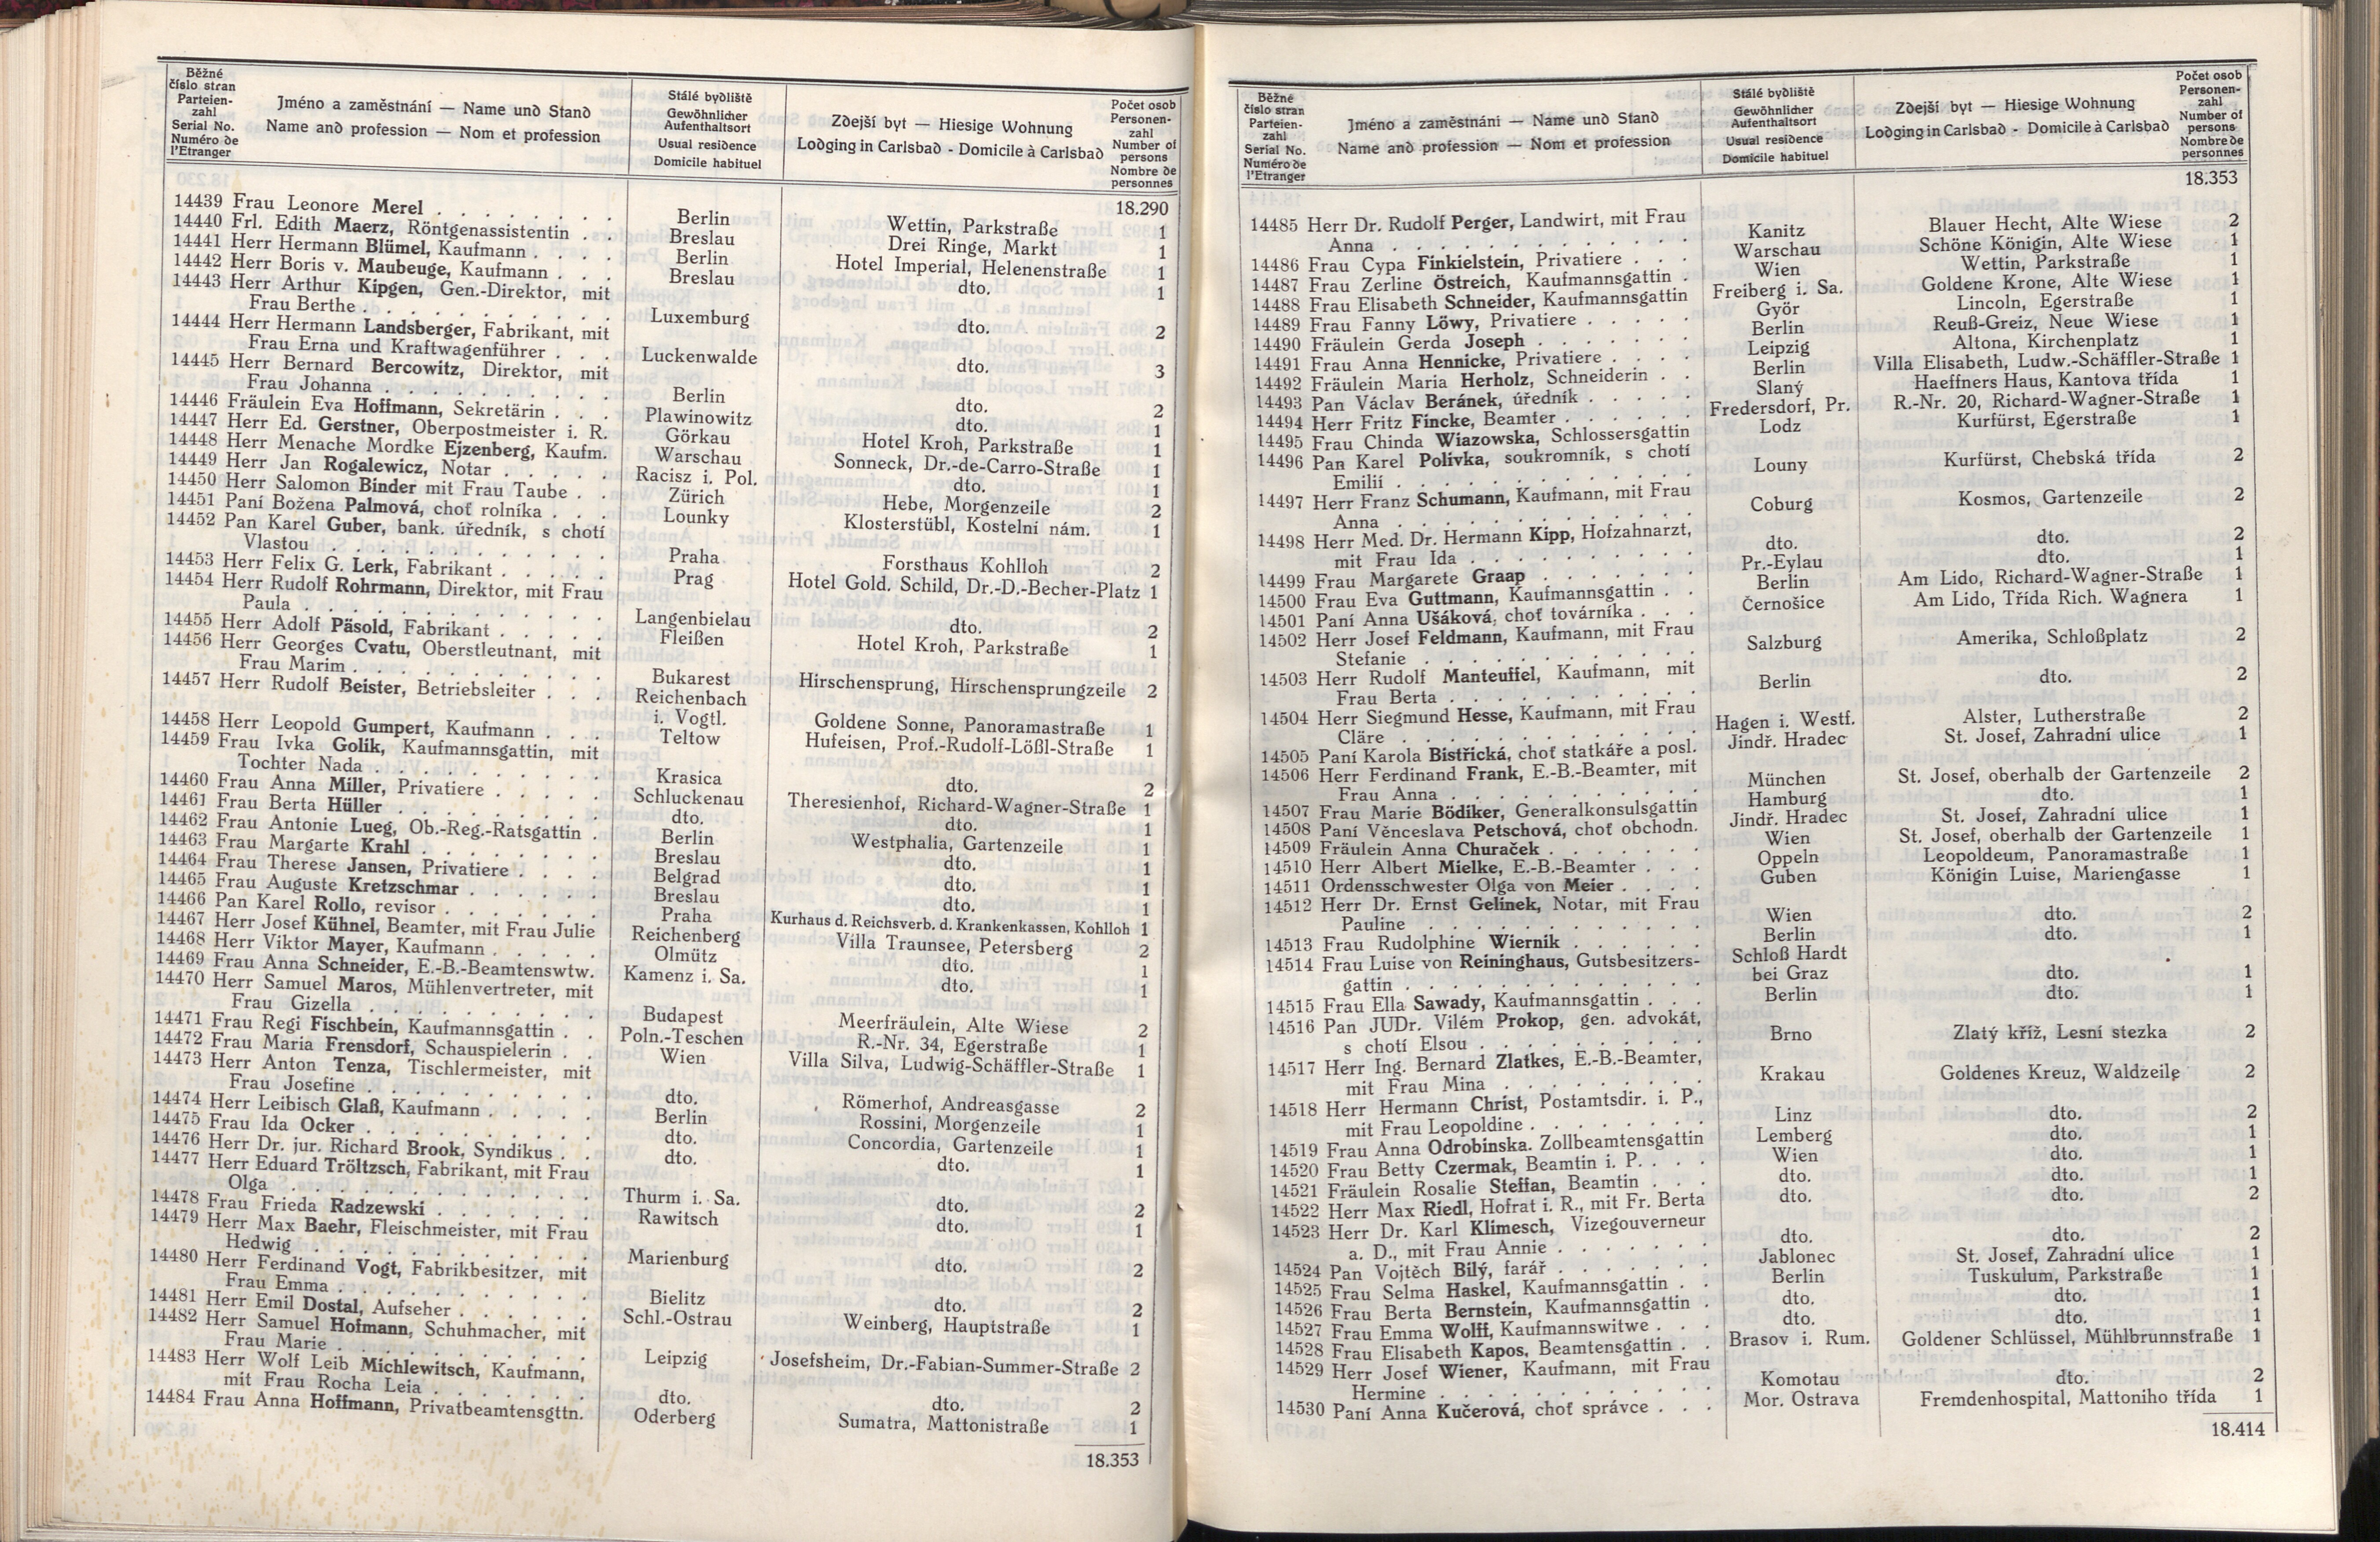 Běžné
číslo stran
Parteien-
zahl
Serial No.
Numéro de
l'Etranger
Jméno a zaměstnání — Name und Stand
Name and profession — Nom et profession
Stálé bydliště
Gewöhnlicher
Aufenthaltsort
Usual residence
Domicile habituel
Zdejší byt — Hiesige Wohnung
Lodging in Carlsbad - Domicile à Carlsbad
Počet osob
Personen-
zahl
Number of
persons
Nombre de
personnes
18.290
14439 Frau Leonore Merel . . . . . . . . Berlin Wettin, Parkstraße 1
14440 Frl. Edith Maerz, Röntgenassistentin . . Breslau Drei Ringe, Markt 1
14441 Herr Hermann Blümel, Kaufmann . . . . Berlin Hotel Imperial, Helenenstraße 1
14442 Herr Boris v. Maubeuge, Kaufmann . . . Breslau dto. 1
14443 Herr Arthur Kipgen, Gen.-Direktor, mit
Frau Berthe . . . . . . . . . . Luxemburg dto. 2
14444 Herr Hermann Landsberger, Fabrikant, mit
Frau Erna und Kraftwagenführer . . . Luckenwalde dto. 3
14445 Herr Bernard Bercowitz, Direktor, mit
Frau Johanna . . . . . . . . . Berlin dto. 2
14446 Fräulein Eva Hoffmann, Sekretärin . . . Plawinowitz dto. 1
14447 Herr Ed. Gerstner, Oberpostmeister i. R. Görkau Hotel Kroh, Parkstraße 1
14448 Herr Menache Mordke Ejzenberg, Kaufm. Warschau Sonneck, Dr.-de-Carro-Straße 1
14449 Herr Jan Rogalewicz, Notar . . . . . Racisz i. Pol. dto. 1
14450 Herr Salomon Binder mit Frau Taube . . Zürich Hebe, Morgenzeile 2
14451 Paní Božena Palmová, choť rolníka . . . Lounky Klosterstübl, Kostelní nám. 1
14452 Pan Karel Guber, bank. úředník, s chotí
Vlastou . . . . . . . . . . . Praha Forsthaus Kohlloh 2
14453 Herr Felix G. Lerk, Fabrikant . . . . . Prag Hotel Gold. Schild, Dr.-D.-Becher-Platz 1
14454 Herr Rudolf Rohrmann, Direktor, mit Frau
Paula . . . . . . . . . . . . Langenbielau dto. 2
14455 Herr Adolf Päsold, Fabrikant . . . . . Fleißen Hotel Kroh, Parkstraße 1
14456 Herr Georges Cvatu, Oberstleutnant, mit
Frau Marim . . . . . . . . . . Bukarest Hirschensprung, Hirschensprungzeile 2
14457 Herr Rudolf Beister, Betriebsleiter . . . Reichenbach
i. Vogtl. Goldene Sonne, Panoramastraße 1
14458 Herr Leopold Gumpert, Kaufmann . . . Teltow Hufeisen, Prof.-Rudolf-Lößl-Straße 1
14459 Frau Ivka Golik, Kaufmannsgattin, mit
Tochter Nada . . . . . . . . . Krasica dto. 2
14460 Frau Anna Miller, Privatiere . . . . . Schluckenau Theresienhof, Richard-Wagner-Straße 1
14461 Frau Berta Hüller . . . . . . . . . dto. dto. 1
14462 Frau Antonie Lueg, Ob.-Reg.-Ratsgattin . Berlin Westphalia, Gartenzeile 1
14463 Frau Margarte Krahl . . . . . . . . Breslau dto. 1
14464 Frau Therese Jansen, Privatiere . . . . Belgrad dto. 1
14465 Frau Auguste Kretzschmar . . . . . . Breslau dto. 1
14466 Pan Karel Rollo, revisor . . . . . . . Praha Kurhaus d. Reichsverb. d. Krankenkassen, Kohlloh 1
14467 Herr Josef Kühnel, Beamter, mit Frau Julie Reichenberg Villa Traunsee, Petersberg 2
14468 Herr Viktor Mayer, Kaufmann . . . . . Olmütz dto. 1
14469 Frau Anna Schneider, E.-B.-Beamtenswtw. Kamenz i. Sa. dto. 1
14470 Herr Samuel Maros, Mühlenvertreter, mit
Frau Gizella . . . . . . . . . . Budapest Meerfräulein, Alte Wiese 2
14471 Frau Regi Fischbein, Kaufmannsgattin . . Poln.-Teschen R.-Nr. 34, Egerstraße 1
14472 Frau Maria Frensdorf, Schauspielerin . . Wien Villa Silva, Ludwig-Schäffler-Straße 1
14473 Herr Anton Tenza, Tischlermeister, mit
Frau Josefine . . . . . . . . . dto. Römerhof, Andreasgasse 2
14474 Herr Leibisch Glaß, Kaufmann . . . . . Berlin Rossini, Morgenzeile 1
14475 Frau Ida Ocker . . . . . . . . . . dto. Concordia, Gartenzeile 1
14476 Herr Dr. jur. Richard Brook, Syndikus . . dto. dto. 1
14477 Herr Eduard Tröltzsch, Fabrikant, mit Frau
Olga . . . . . . . . . . . . Thurm i. Sa. dto. 2
14478 Frau Frieda Radzewski . . . . . . . Rawitsch dto. 1
14479 Herr Max Baehr, Fleischmeister, mit Frau
Hedwig . . . . . . . . . . . Marienburg dto. 2
14480 Herr Ferdinand Vogt, Fabrikbesitzer, mit
Frau Emma . . . . . . . . . . Bielitz dto. 2
14481 Herr Emil Dostal, Aufseher . . . . . . Schl.-Ostrau Weinberg, Hauptstraße 1
14482 Herr Samuel Hofmann, Schuhmacher, mit
Frau Marie . . . . . . . . . . Leipzig Josefsheim, Dr.-Fabian-Summer-Straße 2
14483 Herr Wolf Leib Michlewitsch, Kaufmann,
mit Frau Rocha Leia . . . . . . . dto. dto. 2
14484 Frau Anna Hoffmann, Privatbeamtensgttn. Oderberg Sumatra, Mattonistraße 1
18.353
Běžné
číslo stran
Parteien-
zahl
Serial No.
Numéro de
l'Etranger
Jméno a zaměstnání — Name und Stand
Name and profession — Nom et profession
Stálé bydliště
Gewöhnlicher
Aufenthaltsort
Usual residence
Domicile habituel
Zdejší byt — Hiesige Wohnung
Lodging in Carlsbad - Domicile à Carlsbad
Počet osob
Personen-
zahl
Number of
persons
Nombre de
personnes
18.353
14485 Herr Dr. Rudolf Perger, Landwirt, mit Frau
Anna . . . . . . . . . . . . Kanitz Blauer Hecht, Alte Wiese 2
14486 Frau Cypa Finkielstein, Privatiere . . . Warschau Schöne Königin, Alte Wiese 1
14487 Frau Zerline Östreich, Kaufmannsgattin . Wien Wettin, Parkstraße 1
14488 Frau Elisabeth Schneider, Kaufmannsgattin Freiberg i. Sa. Goldene Krone, Alte Wiese 1
14489 Frau Fanny Löwy, Privatiere . . . . . Györ Lincoln, Egerstraße 1
14490 Fräulein Gerda Joseph . . . . . . . Berlin Reuß-Greiz, Neue Wiese 1
14491 Frau Anna Hennicke, Privatiere . . . . Leipzig Altona, Kirchenplatz 1
14492 Fräulein Maria Herholz, Schneiderin . . Berlin Villa Elisabeth, Ludw.-Schäffler-Straße 1
14493 Pan Václav Beránek, úředník . . . . . Slaný Haeffners Haus, Kantova třída 1
14494 Herr Fritz Fincke, Beamter . . . . . . Fredersdorf, Pr. R.-Nr. 20, Richard-Wagner-Straße 1
14495 Frau Chinda Wiazowska, Schlossersgattin Lodz Kurfürst, Egerstraße 1
14496 Pan Karel Polívka, soukromník, s chotí
Emilií . . . . . . . . . . . . Louny Kurfürst, Chebská třída 2
14497 Herr Franz Schumann, Kaufmann, mit Frau
Anna . . . . . . . . . . . . Coburg Kosmos, Gartenzeile 2
14498 Herr Med. Dr. Hermann Kipp, Hofzahnarzt,
mit Frau Ida . . . . . . . . . dto. dto. 2
14499 Frau Margarete Graap . . . . . . . Pr.-Eylau dto. 1
14500 Frau Eva Guttmann, Kaufmannsgattin . . Berlin Am Lido, Richard-Wagner-Straße 1
14501 Paní Anna Ušáková, choť továrníka . . . Černošice Am Lido, Třída Rich. Wagnera 1
14502 Herr Josef Feldmann, Kaufmann, mit Frau
Stefanie . . . . . . . . . . . Salzburg Amerika, Schloßplatz 2
14503 Herr Rudolf Manteuffel, Kaufmann, mit
Frau Berta . . . . . . . . . . Berlin dto. 2
14504 Herr Siegmund Hesse, Kaufmann, mit Frau
Cläre . . . . . . . . . . . . Hagen i. Westf. Alster, Lutherstraße 2
14505 Paní Karola Bistřická, choť statkáře a posl. Jindř. Hradec St. Josef, Zahradní ulice 1
14506 Herr Ferdinand Frank, E.-B.-Beamter, mit
Frau Anna . . . . . . . . . . München St. Josef, oberhalb der Gartenzeile 2
14507 Frau Marie Bödiker, Generalkonsulsgattin Hamburg dto. 1
14508 Paní Věnceslava Petschová, choť obchodn. Jindř. Hradec St. Josef, Zahradní ulice 1
14509 Fräulein Anna Churaček . . . . . . . Wien St. Josef, oberhalb der Gartenzeile 1
14510 Herr Albert Mielke, E.-B.-Beamter . . . Oppeln Leopoldeum, Panoramastraße 1
14511 Ordensschwester Olga von Meier . . . . Guben Königin Luise, Mariengasse 1
14512 Herr Dr. Ernst Gelinek, Notar, mit Frau
Pauline . . . . . . . . . . . Wien dto. 2
14513 Frau Rudolphine Wiernik . . . . . . Berlin dto. 1
14514 Frau Luise von Reininghaus, Gutsbesitzers- Schloß Hardt
gattin . . . . . . . . . . . . bei Graz dto. 1
14515 Frau Ella Sawady, Kaufmannsgattin . . . Berlin dto. 1
14516 Pan JUDr. Vilém Prokop, gen. advokát,
s chotí Elsou . . . . . . . . . Brno Zlatý kříž, Lesní stezka 2
14517 Herr Ing. Bernard Zlatkes, E.-B.-Beamter,
mit Frau Mina . . . . . . . . Krakau Goldenes Kreuz, Waldzeile 2
14518 Herr Hermann Christ, Postamtsdir. i. P.,
mit Frau Leopoldine . . . . . . . Linz dto. 2
14519 Frau Anna Odrobinska. Zollbeamtensgattin Lemberg dto. 1
14520 Frau Betty Czermak, Beamtin i. P. . . . Wien dto. 1
14521 Fräulein Rosalie Steffan, Beamtin . . . dto. dto. 1
14522 Herr Max Riedl, Hofrat i. R., mit Fr. Berta dto. dto. 2
14523 Herr Dr. Karl Klimesch, Vizegouverneur
a. D., mit Frau Annie . . . . . . dto. dto. 2
14524 Pan Vojtěch Bílý, farář . . . . . . . Jablonec St. Josef, Zahradní ulice 1
14525 Frau Selma Haskel, Kaufmannsgattin . . Berlin Tuskulum, Parkstraße 1
14526 Frau Berta Bernstein, Kaufmannsgattin . dto. dto. 1
14527 Frau Emma Wolff, Kaufmannswitwe . . . dto. dto. 1
14528 Frau Elisabeth Kapos, Beamtensgattin . . Brasov i. Rum. Goldener Schlüssel, Mühlbrunnstraße 1
14529 Herr Josef Wiener, Kaufmann, mit Frau
Hermine . . . . . . . . . . . Komotau dto. 2
14530 Paní Anna Kučerová, choť správce . . . Mor. Ostrava Fremdenhospital, Mattoniho třída 1
18.414